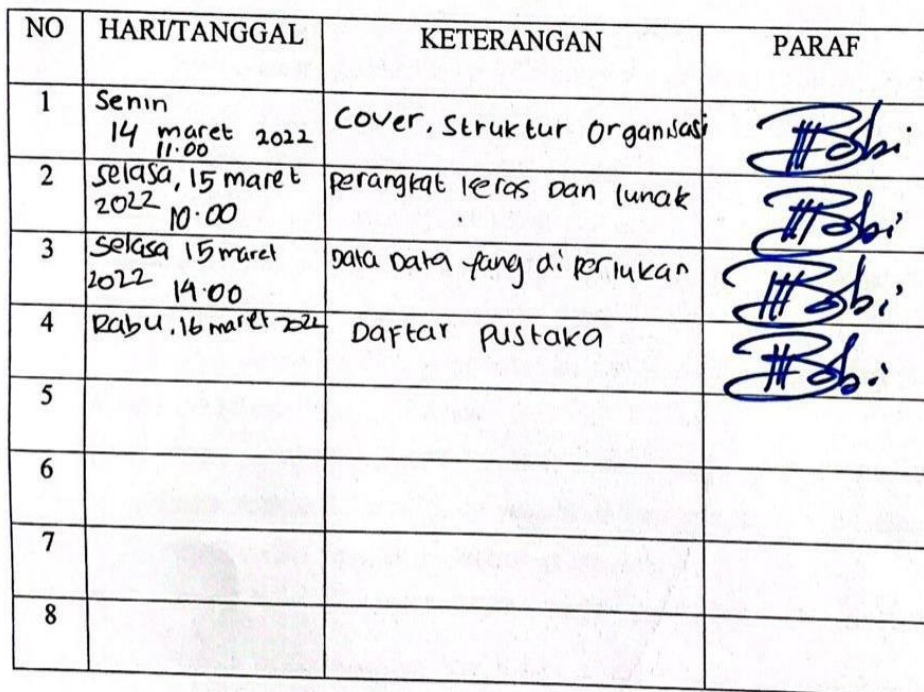 NO HARI/TANGGAL KETERANGAN PARAF
1 Senin
14 maret 2022
11.00
Cover, Struktur Organisasi
Bobi
2 Selasa, 15 maret
2022 10.00
Perangkat keras Dan lunak
Bobi
3 Selasa 15 maret
2022 14.00
Data Data yang di perlukan
Bobi
4 Rabu, 16 maret 2022
Daftar pustaka
Bobi
5
6
7
8